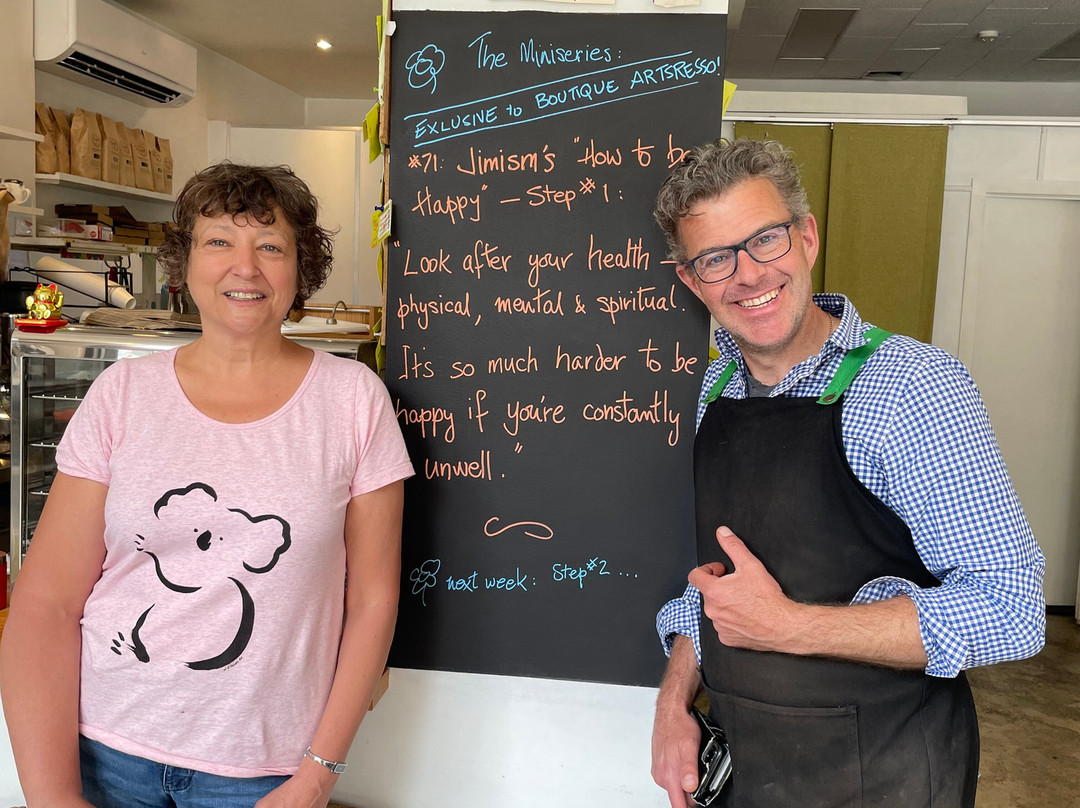 The Miniseries:
EXLUSIVE to BOUTIQUE ARTSRESSO!
#71: Jimism's "How to be
Happy" – Step #1:
"Look after your health –
physical, mental & spiritual.
It's so much harder to be
happy if you're constantly
unwell."
next week: Step #2 ...